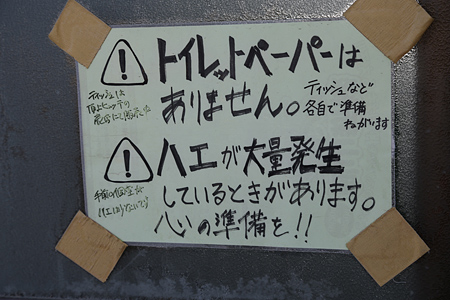 トイレットペーパーは
ありません。
ティッシュなど
各自で準備
ねがいます
ティッシュは
頂上ヒュッテの
売店にて
ハエが大量発生
しているときがあります。
心の準備を!!
手前の